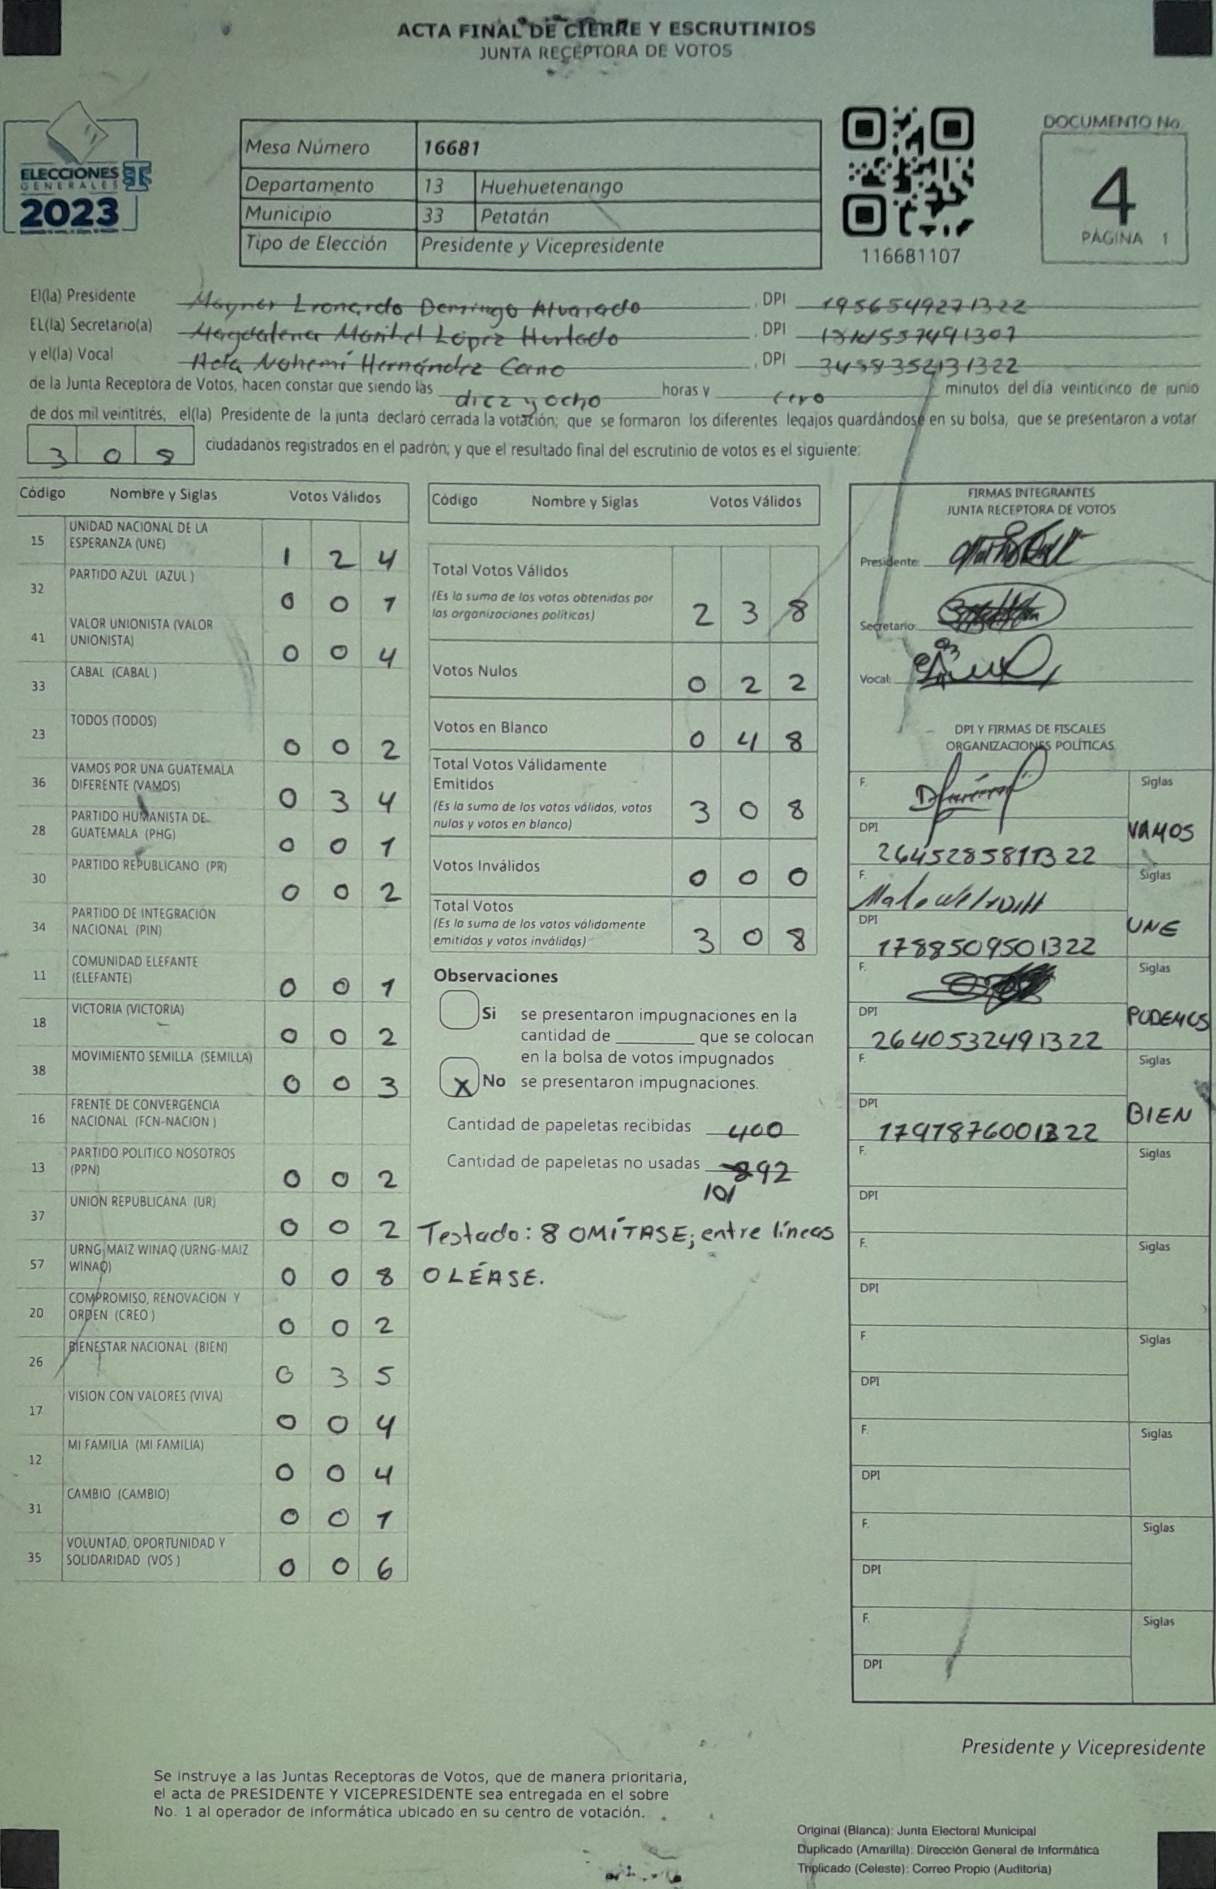 ACTA FINAL DE CIERRE Y ESCRUTINIOS
JUNTA RECEPTORA DE VOTOS
ELECCIONES
GENERALES
2023
Mesa Número 16681
Departamento 13 Huehuetenango
Municipio 33 Petatán
Tipo de Elección Presidente y Vicepresidente
116681107
DOCUMENTO No.
4
PÁGINA 1
El(la) Presidente Mayner Leonardo Domingo Alvarado , DPI 1956549271322
EL(la) Secretario(a) Magdalena Maribel López Hurtado , DPI
y el(la) Vocal Nohemí Hernández Cano , DPI 3458352131322
de la Junta Receptora de Votos, hacen constar que siendo las diez y ocho horas y cero minutos del día veinticinco de junio
de dos mil veintitrés, el(la) Presidente de la junta declaró cerrada la votación; que se formaron los diferentes legajos guardándose en su bolsa, que se presentaron a votar
308 ciudadanos registrados en el padrón; y que el resultado final del escrutinio de votos es el siguiente:
Código Nombre y Siglas Votos Válidos
15 UNIDAD NACIONAL DE LA
ESPERANZA (UNE) 1 2 4
32 PARTIDO AZUL (AZUL ) 0 0 1
41 VALOR UNIONISTA (VALOR
UNIONISTA) 0 0 4
33 CABAL (CABAL )
23 TODOS (TODOS) 0 0 2
36 VAMOS POR UNA GUATEMALA
DIFERENTE (VAMOS) 0 3 4
28 PARTIDO HUMANISTA DE
GUATEMALA (PHG) 0 0 1
30 PARTIDO REPUBLICANO (PR) 0 0 2
34 PARTIDO DE INTEGRACIÓN
NACIONAL (PIN)
11 COMUNIDAD ELEFANTE
(ELEFANTE) 0 0 1
18 VICTORIA (VICTORIA) 0 0 2
38 MOVIMIENTO SEMILLA (SEMILLA) 0 0 3
16 FRENTE DE CONVERGENCIA
NACIONAL (FCN-NACION )
13 PARTIDO POLITICO NOSOTROS
(PPN) 0 0 2
37 UNION REPUBLICANA (UR) 0 0 2
57 URNG MAIZ WINAQ (URNG-MAIZ
WINAQ) 0 0 8
20 COMPROMISO, RENOVACION Y
ORDEN (CREO ) 0 0 2
26 BIENESTAR NACIONAL (BIEN) 0 3 5
17 VISION CON VALORES (VIVA) 0 0 4
12 MI FAMILIA (MI FAMILIA) 0 0 4
31 CAMBIO (CAMBIO) 0 0 1
35 VOLUNTAD, OPORTUNIDAD Y
SOLIDARIDAD (VOS ) 0 0 6
Código Nombre y Siglas Votos Válidos
Total Votos Válidos
(Es la suma de los votos obtenidos por
las organizaciones políticas) 2 3 8
Votos Nulos 0 2 2
Votos en Blanco 0 4 8
Total Votos Válidamente
Emitidos
(Es la suma de los votos válidos, votos
nulos y votos en blanco) 3 0 8
Votos Inválidos 0 0 0
Total Votos
(Es la suma de los votos válidamente
emitidos y votos inválidos) 3 0 8
Observaciones
Si se presentaron impugnaciones en la
cantidad de ________ que se colocan
en la bolsa de votos impugnados
X No se presentaron impugnaciones.
Cantidad de papeletas recibidas 400
Cantidad de papeletas no usadas 892
101
Testado: 8 OMÍTASE; entre líneas
0 LÉASE.
FIRMAS INTEGRANTES
JUNTA RECEPTORA DE VOTOS
Presidente:
Secretario:
Vocal:
DPI Y FIRMAS DE FISCALES
ORGANIZACIONES POLÍTICAS
F. Siglas
DPI VAMOS
2645285811322
F. Siglas
DPI UNE
1788509501322
F. Siglas
DPI PODEMOS
2640532491322
F. Siglas
DPI BIEN
1797876001322
F. Siglas
DPI
F. Siglas
DPI
F. Siglas
DPI
F. Siglas
DPI
F. Siglas
DPI
F. Siglas
DPI
Presidente y Vicepresidente
Se instruye a las Juntas Receptoras de Votos, que de manera prioritaria,
el acta de PRESIDENTE Y VICEPRESIDENTE sea entregada en el sobre
No. 1 al operador de informática ubicado en su centro de votación.
Original (Blanca): Junta Electoral Municipal
Duplicado (Amarilla): Dirección General de Informática
Triplicado (Celeste): Correo Propio (Auditoria)